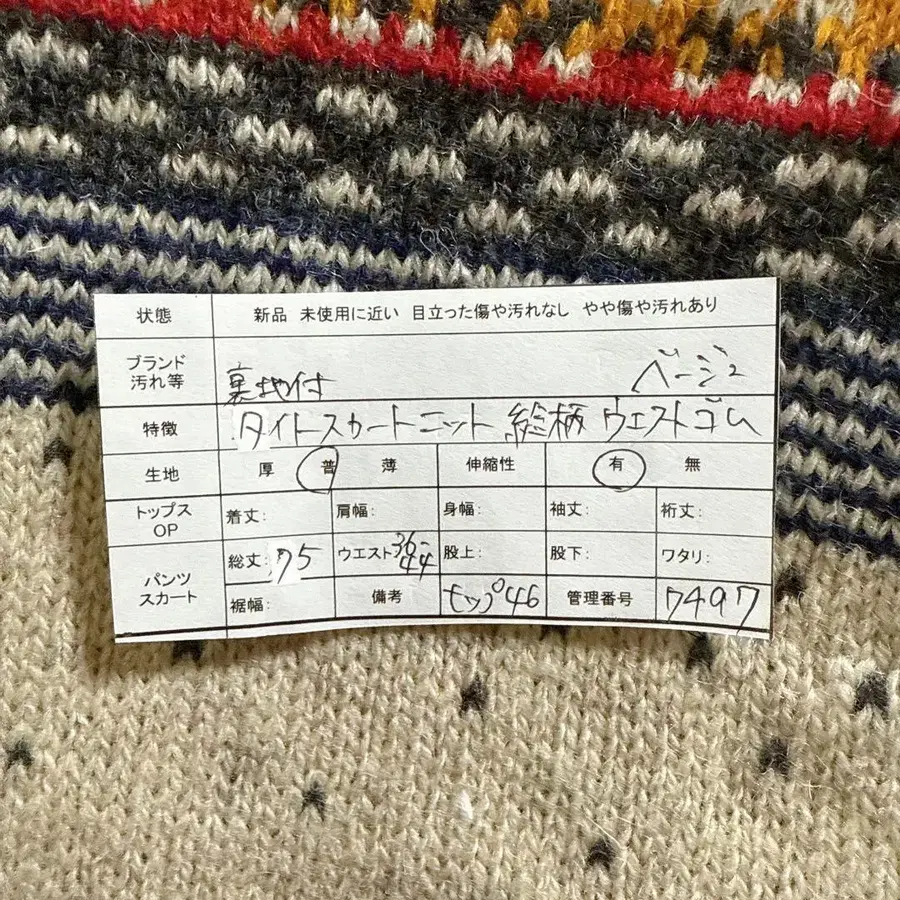 状態 新品 未使用に近い 目立った傷や汚れなし やや傷や汚れあり
ブランド 汚れ等 裏地付 ベージュ
特徴 タイトスカートニット 総柄 ウエストゴム
生地 厚 普 薄 伸縮性 有 無
トップス OP 着丈: 肩幅: 身幅: 袖丈: 裄丈:
パンツ スカート 総丈: 75 ウエスト 36-44 股上: 股下: ワタリ:
裾幅: 備考 ヒップ46 管理番号 7497